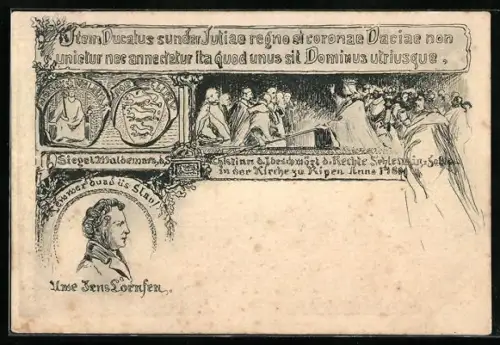 Item Ducatus sunder Jutiae regno et coronae Daciae non
unietur nec annectetur ita quod unus sit Dominus utriusque,
Siegel Waldemars, d. 5
Christian d. I beschwört d. Rechte Schleswig-Holst.
in der Kirche zu Ripen Anno
Lewwer duad üs Slav!
Uwe Jens Lornsen.